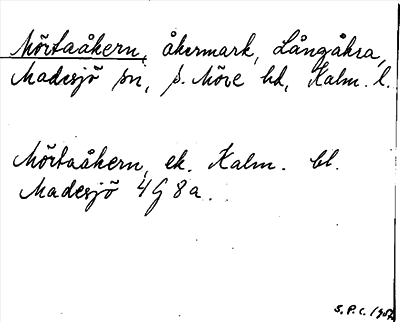 Mörtaåkern, åkermark, Långåkra,
Madesjö sn, s. Möre hd, Kalm. l.
Mörtaåkern, ek. Kalm. bl.
Madesjö 4G 8a.
S.P.C.